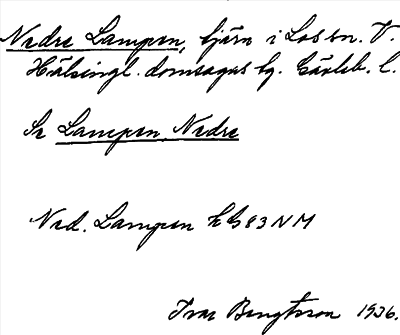 Nedre Lampen, tjärn i Los sn. V.
Hälsingl. domsagas tg. Gävleb. l.
Se Lampen, Nedre
Ned. Lampen hG83NM
Ivar Bengtsson 1936.